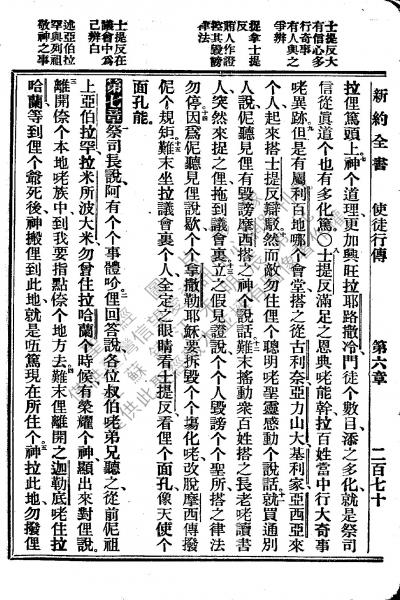 新約全書　使徒行傳　第六章　二百七十
士提反大有信心多行奇事有人與之爭辨
捉拿士提反賄人作證誣其毀謗律法
士提反在議會中為己辨白
述亞伯拉罕與列祖敬神之事
拉俚篤頭上神个道理更加興旺拉耶路撒冷門徒个數目添之多化就是祭司
信從眞道个也有多化篤○士提反滿足之恩典咾能幹拉百姓當中行大奇事
咾異跡但是有屬利百地哪个會堂搭之從古利奈亞力山大基利家亞西亞來
个人起來搭士提反辯駁然而敵勿住俚个聰明咾聖靈感動个說話就買通別
人說伲聽見俚有毀謗摩西搭之神个說話難末搖動衆百姓搭之長老咾讀書
人突然來捉之俚拖到議會裏立之假見證說个个人毀謗个个聖所搭之律法
勿停因爲伲聽見俚說歇个个拿撒勒耶穌要拆毀个个塲化咾改脫摩西傳撥
伲个規矩難末坐拉議會裏个人全定之眼睛看士提反看俚个面孔像天使个
面孔能
第七章祭司長說阿有个个事體吤俚回答說各位叔伯咾弟兄聽之從前伲祖
上亞伯拉罕拉米所波大米勿曾住拉哈蘭个時候有榮耀个神顯出來對俚說
離開倷个本地咾族中到我要指點倷个地方去難末俚離開之迦勒底咾住拉
哈蘭等到俚个爺死後神搬俚到此地就是𠲎篤現在所住个神拉此地勿撥俚